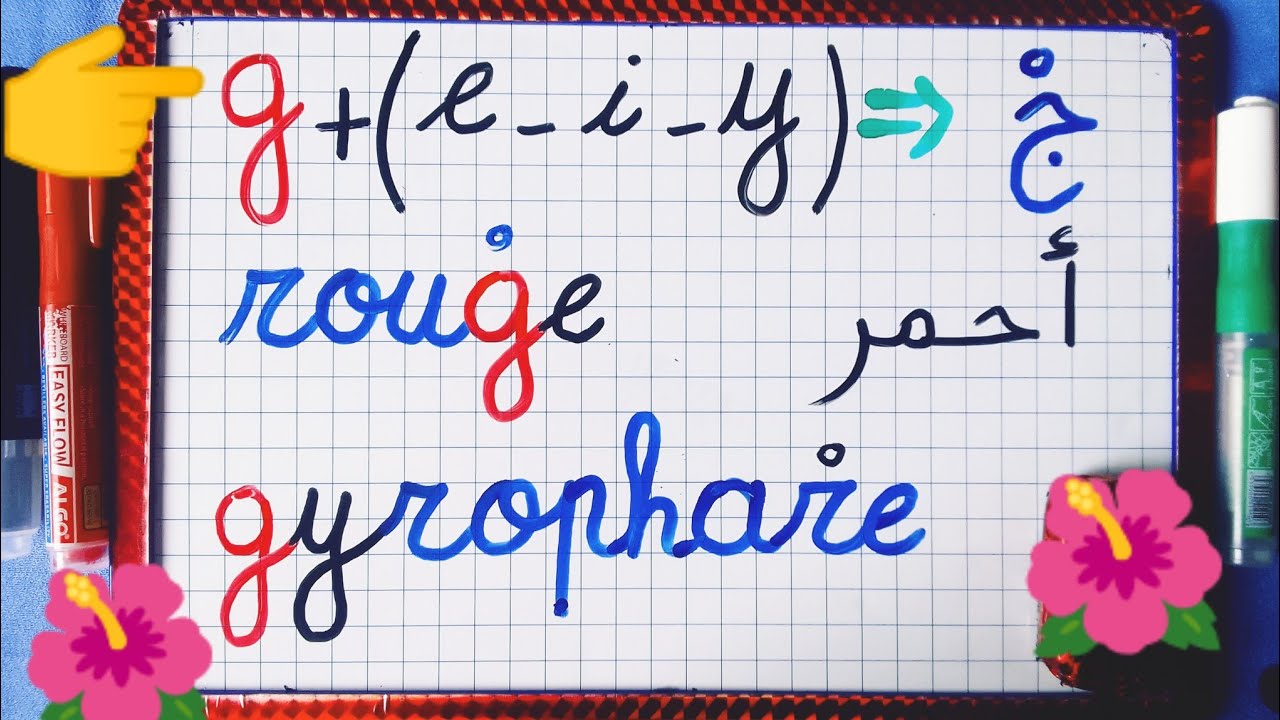 g + (e - i - y) ⇒ جْ
rouge أحمر
gyrophare
WHITEBOARD MARKER EASY FLOW ALGO